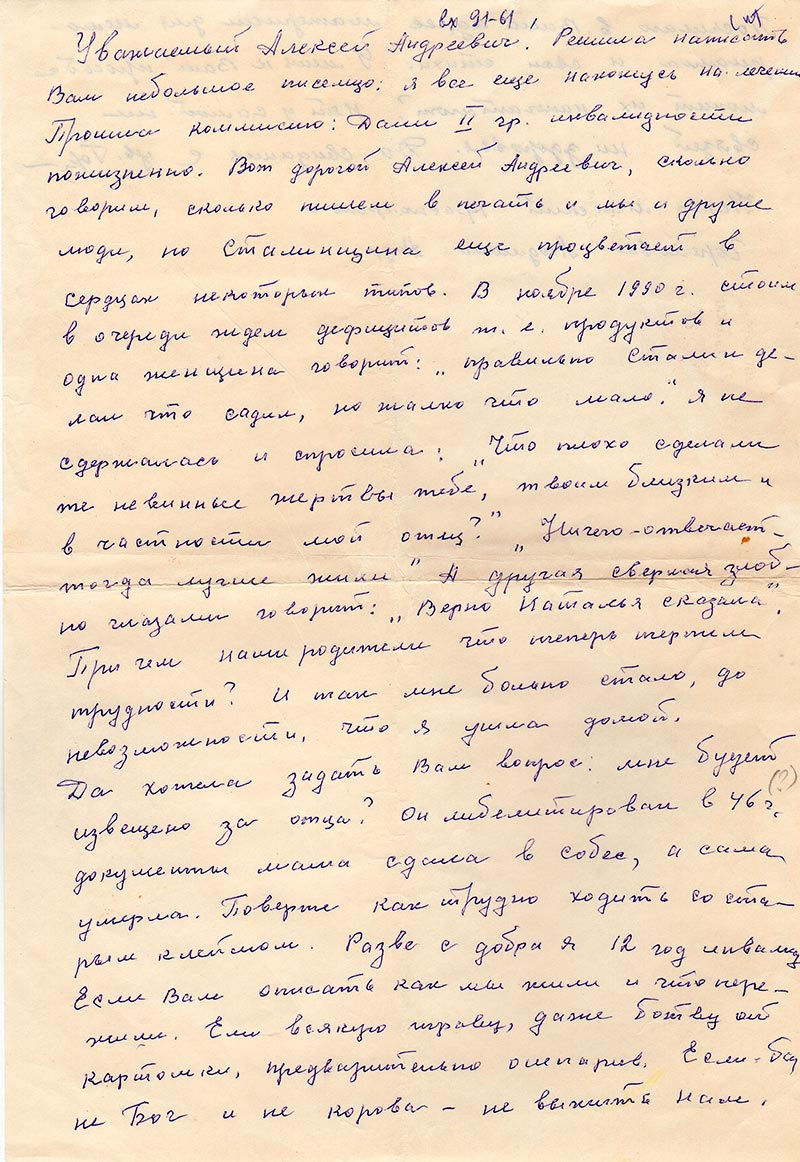 вх 91-61,
Уважаемый Алексей Андреевич. Решила написать
Вам небольшое письмцо: я все еще нахожусь на лечении
Прошла коммисию: Дали II гр. инвалидности
пожизненно. Вот дорогой Алексей Андреевич, сколько
говорим, сколько пишем в печать и мы и другие
люди, но Сталинщина еще процветает в
сердцах некоторых типов. В ноябре 1990 г. стоим
в очереди ждем дефицитов т. е. продуктов и
одна женщина говорит: „правильно Сталин де-
лал что садил, но жалко что мало." я не
сдержалась и спросила: „Что плохо сделали
те невинные жертвы тебе, твоим близким и
в частности мой отец?" „Ничего-отвечает-
тогда лучше жили" А другая сверкая злоб-
но глазами говорит: „Верно Наталья сказала".
При чем наши родители что теперь терпим
трудности? И так мне больно стало, до
невозможности, что я ушла домой.
Да хотела задать Вам вопрос: мне будет
извещено за отца? Он либелитирован в 46 г. (?)
документы мама сдала в собес, а сама
умерла. Поверте как трудно ходить со ста-
рым клеймом. Разве с добра я 12 год инвалид
Если Вам описать как мы жили и что пере-
жили. Ели всякую траву, даже ботву от
картошки, предварительно ошпарив. Если-бы
не Бог и не корова - не выжить нам.